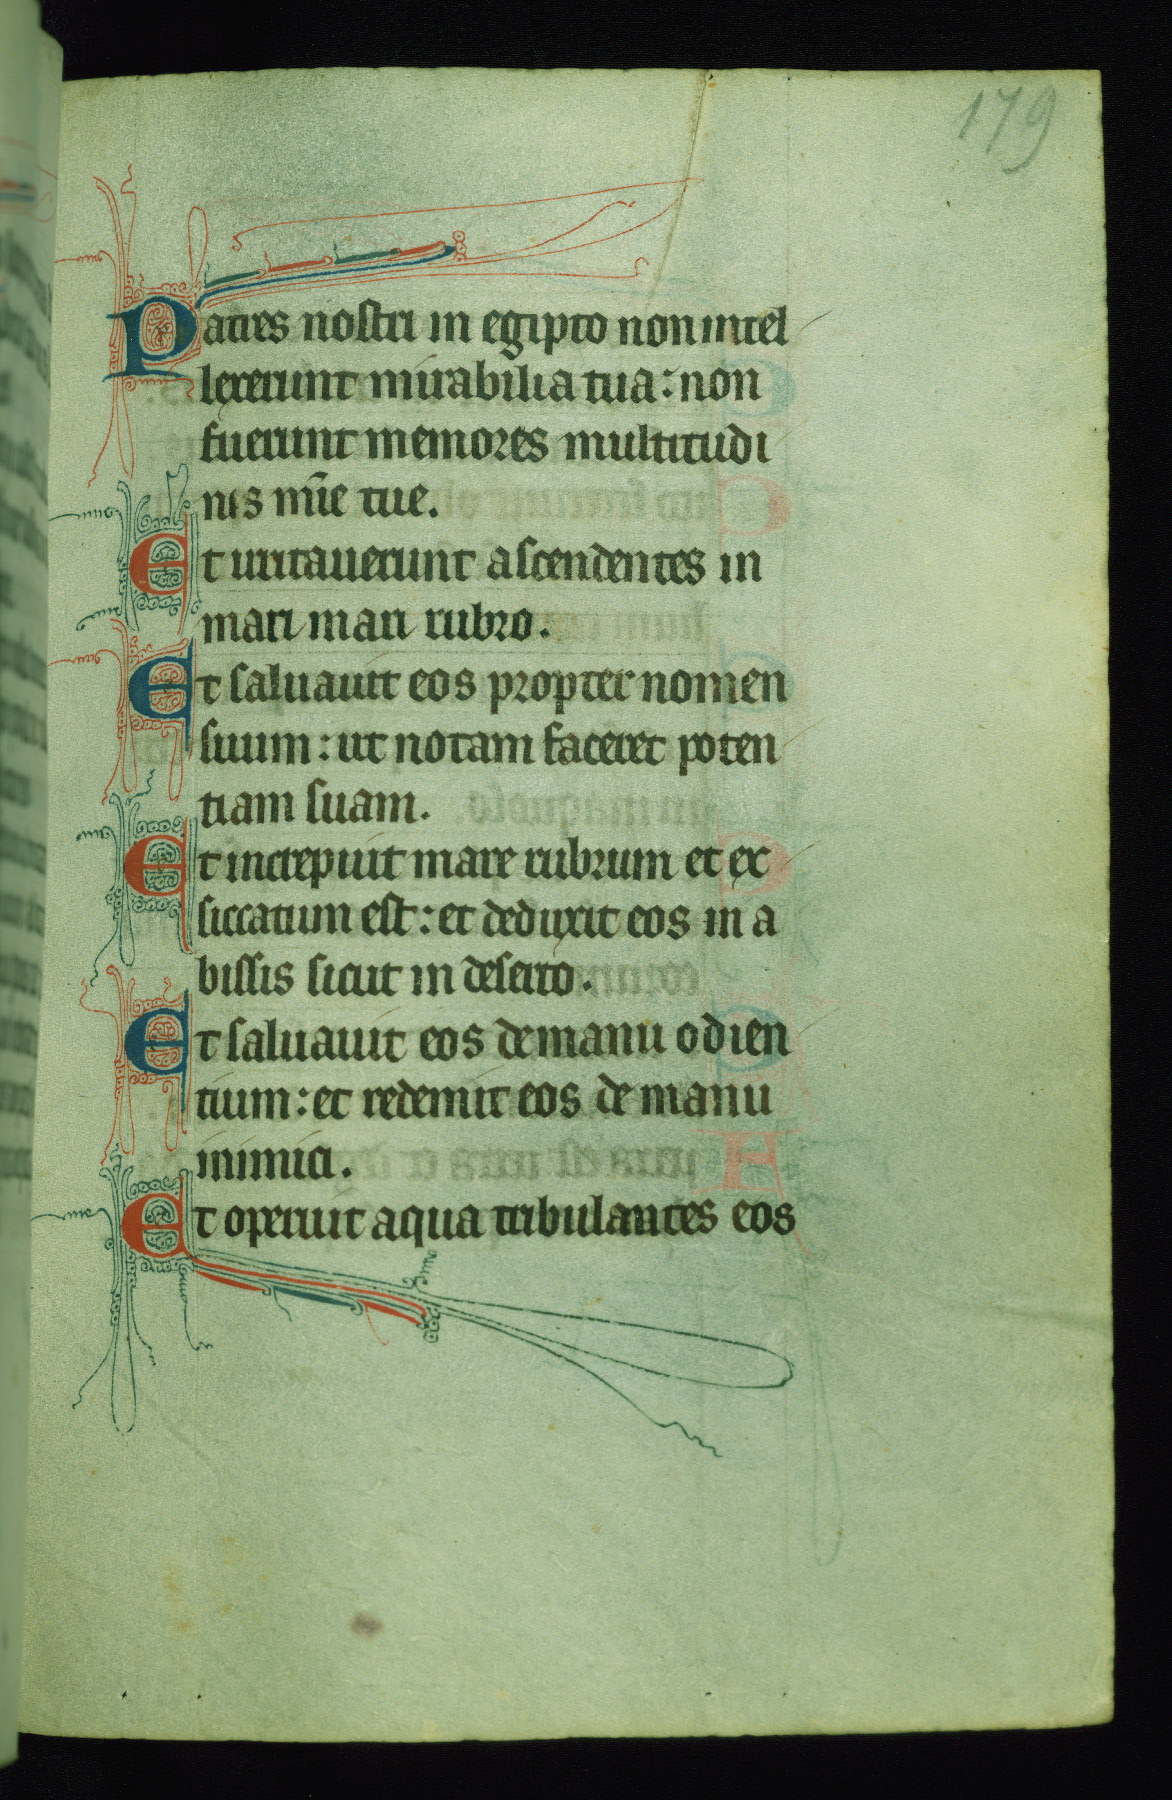 179
Patres nostri in egipto non intel
lexerunt mirabilia tua: non
fuerunt memores multitudi
nis mīe tue.
Et irritauerunt ascendentes in
mari mari rubro.
Et saluauit eos propter nomen
suum: ut notam faceret poten
tiam suam.
Et increpuit mare rubrum et ex
siccatum est: et deduxit eos in a
bissis sicut in deserto.
Et saluauit eos de manu odien
tium: et redemit eos de manu
inimici.
Et operuit aqua tribulantes eos